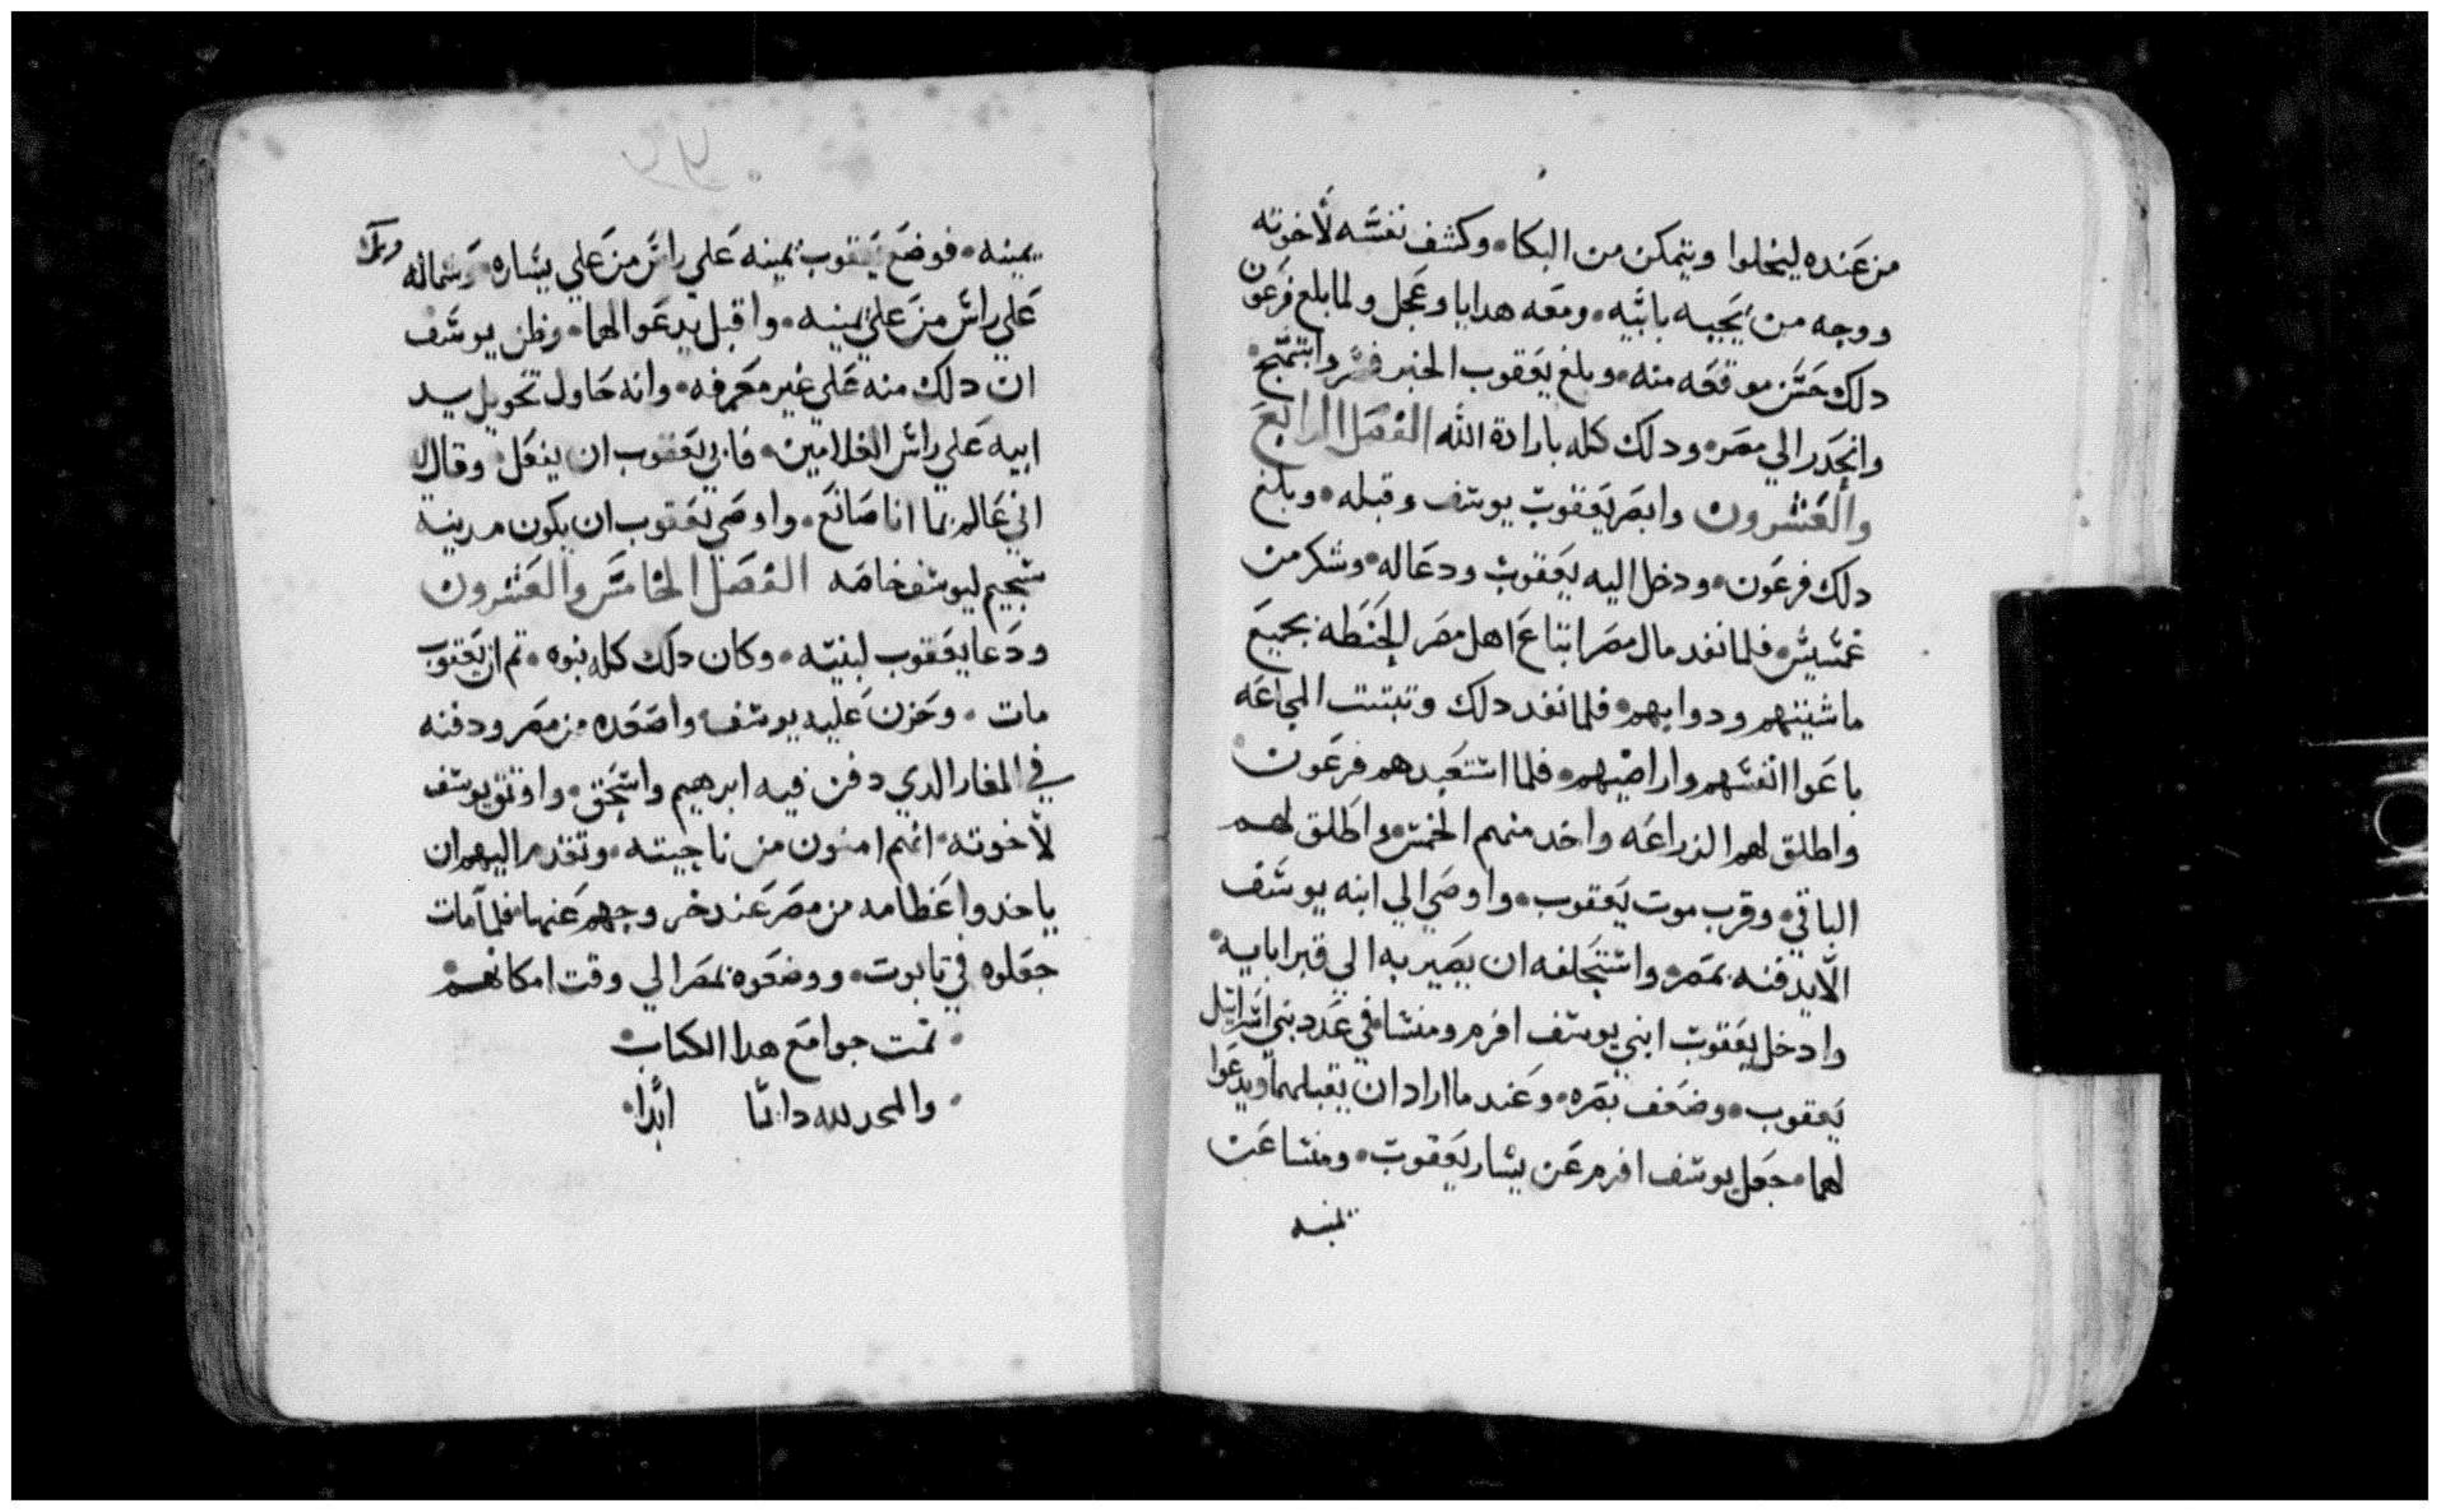 من عنده ليخلوا ويتمكن من البكا • وكشف نفسه لاخوته
ووجه من يجيه بابيه • ومعه هدايا وعجل ولما بلغ فرعون
دلك حسن موقعه منه • وبلغ يعقوب الخبر فسر وابتهج •
وانحدر الي مصر • ودلك كله بارادة الله الفصل الرابع
والعشرون وابصر يعقوب يوسف وقبله • وبلغ
دلك فرعون • ودخل اليه يعقوب ودعا له • وسكر من
عمسيس • فلما نفد مال مصر ابتاع اهل مصر الحنطه بجميع
ماشيتهم ودوابهم • فلما نفد دلك وتبتت المجاعه
باعوا انفسهم واراضيهم • فلما استعبدهم فرعون •
واطلق لهم الزراعه واخد منهم الخمس • واطلق لهم
الباقي • وقرب موت يعقوب • واوصي الي ابنه يوسف
الا يدفنه بمصر • واستحلفه ان يصير به الي قبر ابايه •
وادخل يعقوب ابني يوسف افرم ومنشا في عدد بني اسراييل
يعقوب • وضعف بصره • وعند ما اراد ان يقبلهما ويدعوا
لهما • جعل يوسف افرم عن يسار يعقوب • ومنشا عن
يمينه
يمينه • فوضع يعقوب يمينه علي راس من علي يساره • وشماله
علي راس من علي يمينه • واقبل يدعوا لهما • وظن يوسف
ان دلك منه علي غير معرفه • وانه حاول تحويل يد
ابيه علي راس الغلامين • فابي يعقوب ان يفعل وقال
اني عالم بما انا صانع • واوصي يعقوب ان يكون مدينة
سحيم ليوسف خاصه الفصل الخامس والعشرون
ودعا يعقوب لبنيه • وكان دلك كله نبوه • تم ان يعقوب
مات • وحزن عليه يوسف واصعده من مصر ودفنه
في المغار الدي دفن فيه ابرهيم واسحق • واوتق يوسف
لاخوته • انهم امنون من ناحيته • وتقدم اليهم ان
ياخدوا عظامه من مصر عند خروجهم عنها • فلما مات
جعلوه في تابوت • ووضعوه بمصر الي وقت امكانهم •
• تمت جوامع هدا الكتاب •
• والحمد لله دايما ابدا •